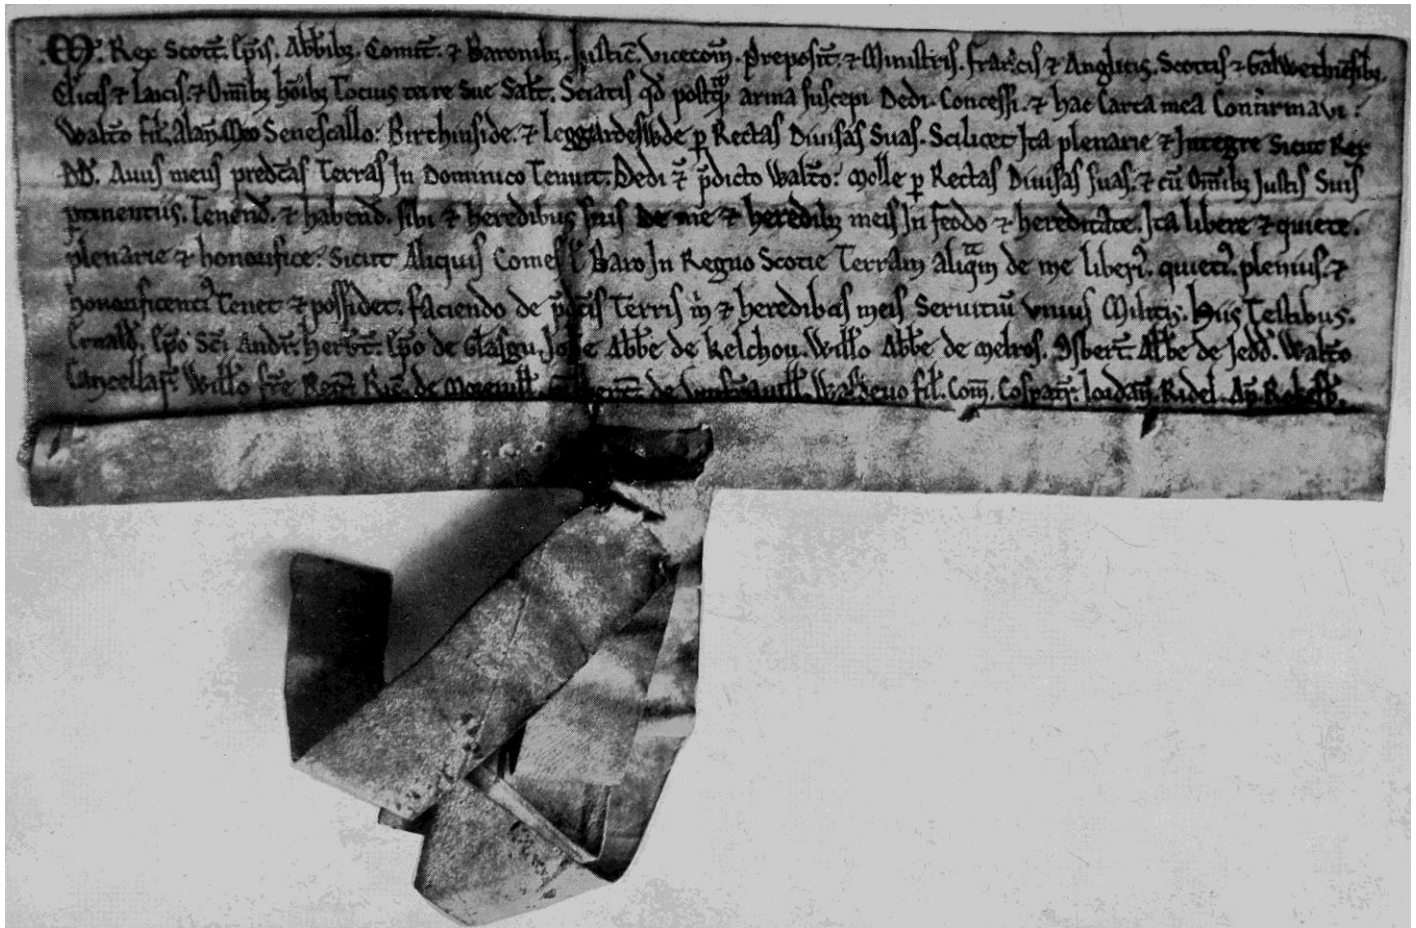 .M. Rex Scott. Ep̄is. Abb̄ibȝ. Comit̄. ⁊ Baronibȝ. Justic̄. Vicecom̄. Preposit̄. ⁊ Ministris. francis ⁊ Anglicis. Scottis ⁊ Galwethiensibȝ.
Cl̄icis ⁊ Laicis. ⁊ Om̄ibȝ ho̅ibȝ Tocius terre Sue Salt̄. Sciatis qd̄ postq̄m arma suscepi Dedi. Concessi. ⁊ hac Carta mea Confirmavi:
Walt̄o fil̄. Alan̄. Meo Senescallo: Birchinside. ⁊ Leggardeswde p̱ Rectas Diuisas Suas. Scilicet Ita plenarie ⁊ Integre Sicut Rex
DD̄. Auus meus pred̄c̄as Terras In Dominico Tenuit. Dedi ⁊ p̄dicto Walt̄o: Molle p̱ Rectas Diuisas suas. ⁊ cū Om̄ibȝ Justis Suis
p̱tinentiis. Tenend̄. ⁊ habend̄. sibi ⁊ heredibus suis De me ⁊ heredibȝ meis In feodo ⁊ hereditate. Ita libere ⁊ quiete.
plenarie ⁊ honorifice: Sicut Aliquis Comes ł Baro In Regno Scotie Terram aliq̄m de me liberi᷒. quieti᷒. plenius. ⁊
honorificenti᷒ Tenet ⁊ possidet. faciendo de p̄dc̄is Terris m̄ ⁊ heredibus meis Seruitiū Vnius Militis. Hiis Testibus.
Ernald̄. Ep̄o Sc̄i Andr̄. herb̄t. Ep̄o de Glasgu. Joh̄e Abb̄e de Kelchou. Will̄o Abb̄e de Melros. Osbert̄. Abb̄e de Jedd̄. Walt̄o
Cancellar̄. Will̄o fr̄e Reḡ. Ric̄. de Moreuill̄. de Vmframuill̄. Waldeuo fil̄. Com̄. Cospatr̄. Jordan̄. Ridel.